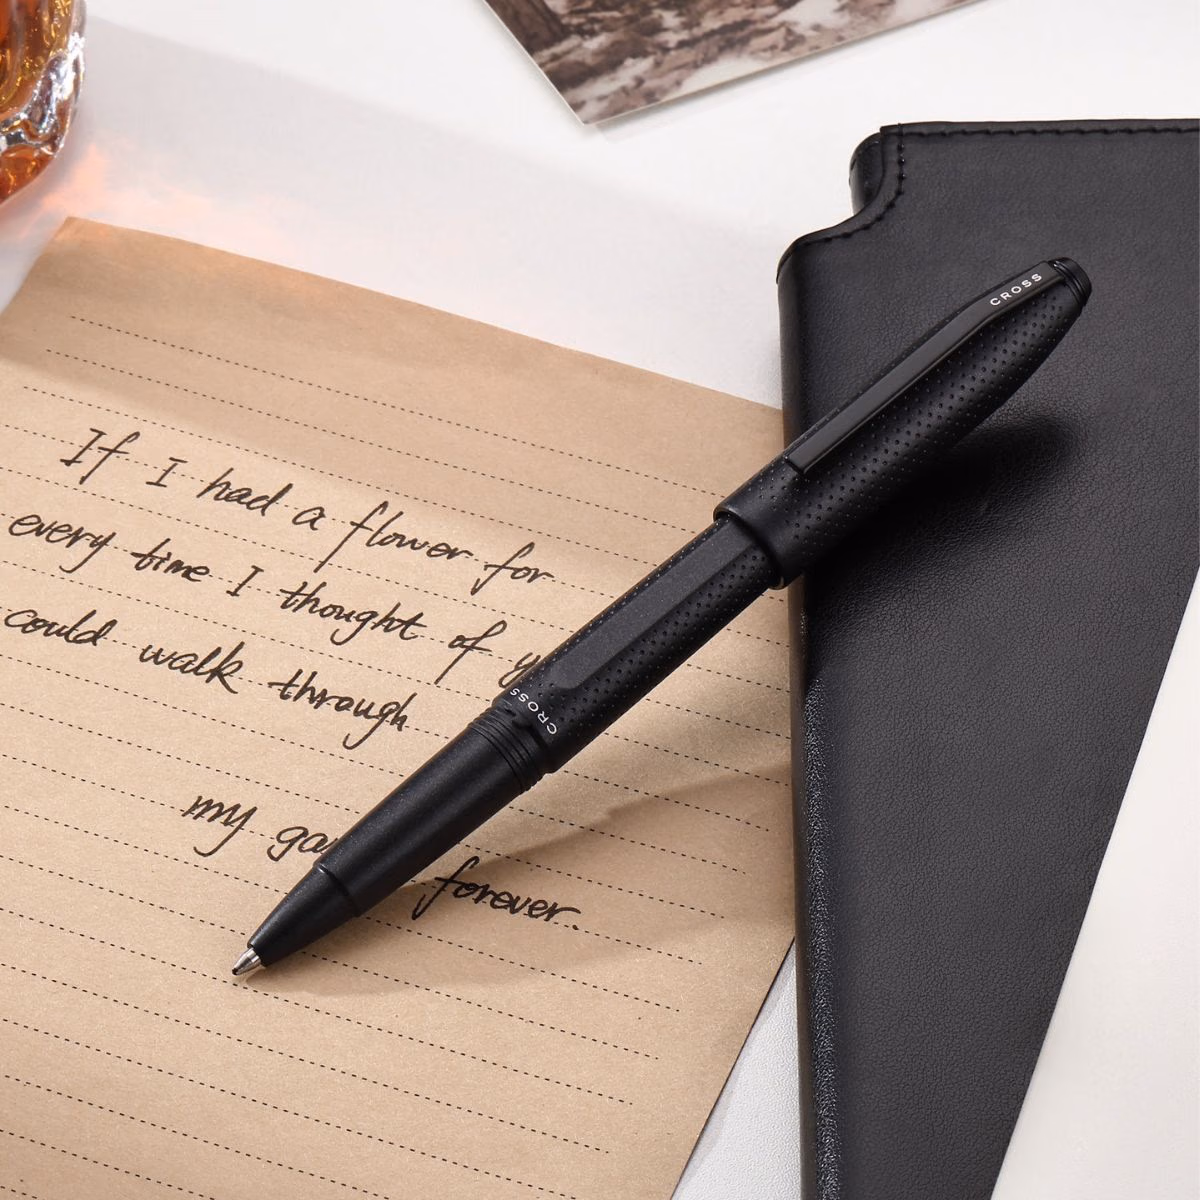 If I had a flower for
every time I thought of
could walk through
my
forever.
CROSS
CROSS